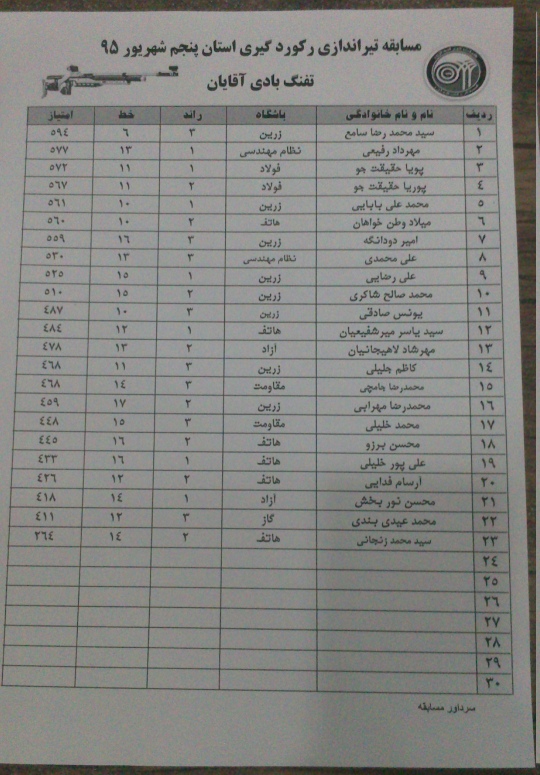 مسابقه تیراندازی رکورد گیری استان پنجم شهریور ۹۵
تفنگ بادی آقایان
ردیف نام و نام خانوادگی باشگاه راند خط امتیاز
۱ سید محمد رضا سامع زرین ۳ ۶ ۵۹۴
۲ مهرداد رفیعی نظام مهندسی ۱ ۱۳ ۵۷۷
۳ پویا حقیقت جو فولاد ۱ ۱۱ ۵۷۲
۴ پوریا حقیقت جو فولاد ۲ ۱۱ ۵۶۷
۵ محمد علی بابایی زرین ۱ ۱۰ ۵۶۱
۶ میلاد وطن خواهان هاتف ۲ ۱۰ ۵۶۰
۷ امیر دودانگه زرین ۳ ۱۶ ۵۵۹
۸ علی محمدی نظام مهندسی ۳ ۱۳ ۵۳۰
۹ علی رضایی زرین ۱ ۱۵ ۵۲۵
۱۰ محمد صالح شاکری زرین ۲ ۱۵ ۵۱۰
۱۱ یونس صادقی زرین ۳ ۱۰ ۴۸۷
۱۲ سید یاسر میرشفیعیان هاتف ۱ ۱۲ ۴۸۴
۱۳ مهرشاد لاهیجانیان آزاد ۲ ۱۳ ۴۷۸
۱۴ کاظم جلیلی زرین ۳ ۱۱ ۴۶۸
۱۵ محمدرضا جامچی مقاومت ۳ ۱۴ ۴۶۸
۱۶ محمدرضا مهرابی زرین ۲ ۱۷ ۴۵۹
۱۷ محمد خلیلی مقاومت ۳ ۱۵ ۴۴۸
۱۸ محسن برزو هاتف ۲ ۱۶ ۴۴۵
۱۹ علی پور خلیلی هاتف ۱ ۱۶ ۴۳۳
۲۰ آرسام فدایی هاتف ۲ ۱۲ ۴۲۶
۲۱ محسن نور بخش آزاد ۱ ۱۴ ۴۱۸
۲۲ محمد عیدی بندی گاز ۳ ۱۲ ۴۱۱
۲۳ سید محمد زنجانی هاتف ۲ ۱۴ ۲۶۴
۲۴
۲۵
۲۶
۲۷
۲۸
۲۹
۳۰
سرداور مسابقه